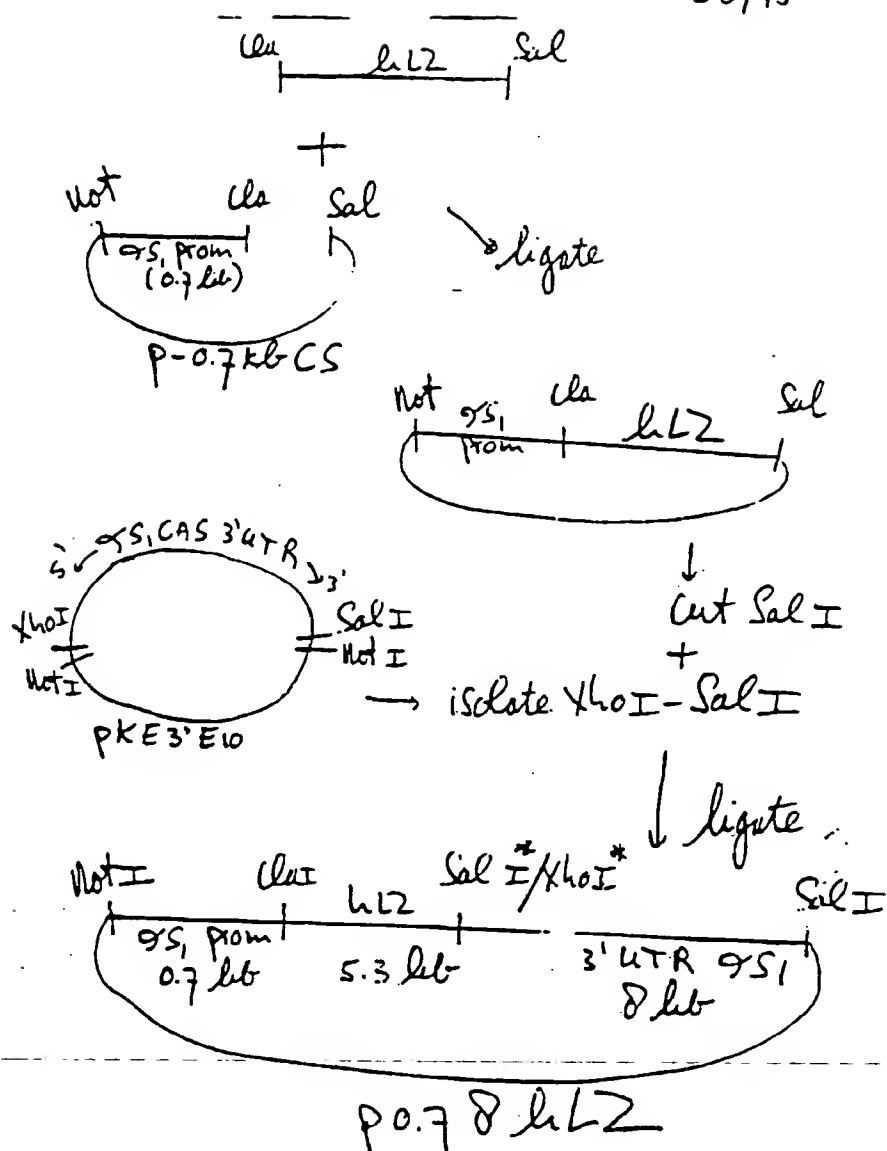 Cla hLZ Sal
+
Not Cla Sal
αS₁ prom
(0.7 kb)
ligate
p-0.7kb CS
Not αS₁ Cla hLZ Sal
prom
5' αS₁CAS 3'UTR 3'
XhoI Sal I
Not I Not I
pKE3'E10
Cut Sal I
+
isolate XhoI-Sal I
ligate
Not I ClaI hLZ Sal I*/XhoI* Sal I
αS₁ prom 5.3 kb 3' UTR αS₁
0.7 kb 8 kb
p0.7 8 hLZ